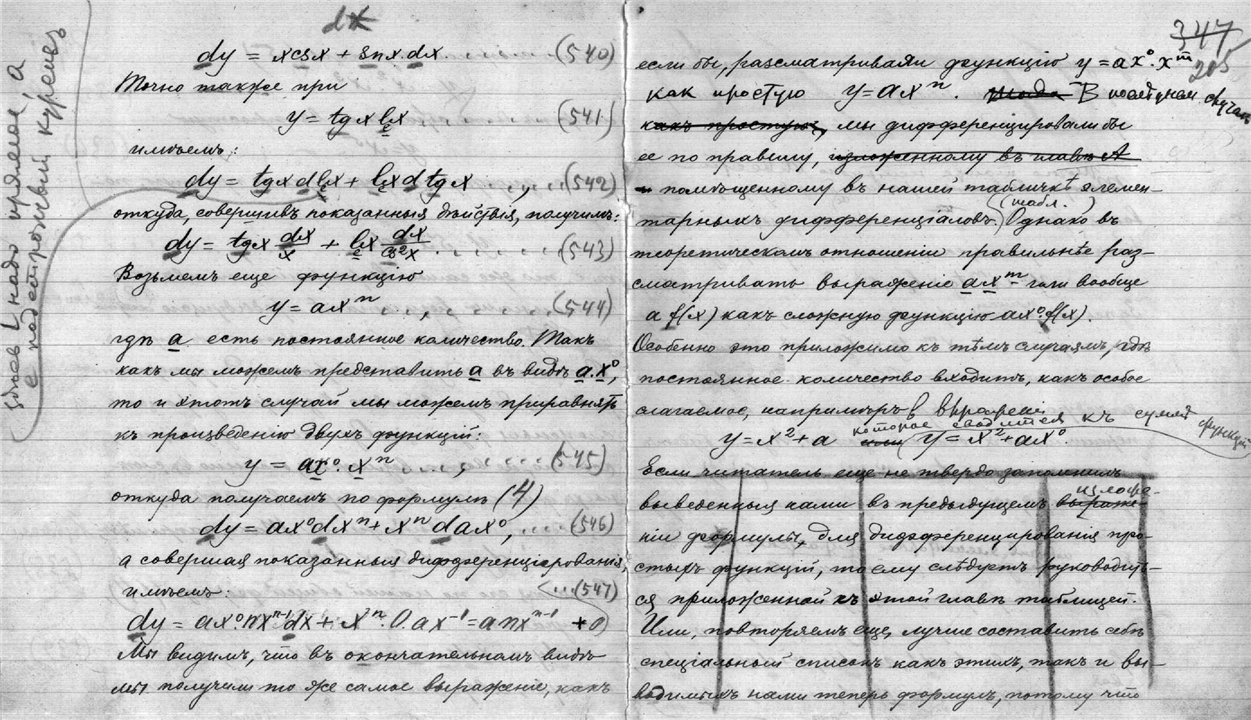 dx
dy = x cs x + sn x. dx. ...(540)
Точно также при
y = tg x lx ...(541)
имѣемъ:
dy = tg x d lx + lx d tg x ..., (542)
откуда, совершивъ показанныя дѣйствія, получимъ:
dy = tg x dx/x + lx dx/cs²x ... (543)
Возьмемъ еще функцію
y = ax^n ..., (544)
гдѣ a есть постоянное количество. Такъ
какъ мы можемъ представить a въ видѣ a.x⁰,
то и этотъ случай мы можемъ приравнять
къ произведенію двухъ функцій:
y = ax⁰. x^n ... (545)
откуда получаемъ по формулѣ (4)
dy = ax⁰dx^n + x^n dax⁰, ... (546)
а совершая показанныя дифференціированія,
имѣемъ: ...(547)
dy = ax⁰.nx^n-1.dx + x^n.0.ax^-1 = anx^n-1 + 0)
Мы видимъ, что въ окончательномъ видѣ
мы получили то же самое выраженіе, какъ
надо прямое, а
е подстрочный курсивъ
347
205
если бы, разсматривали функцію y = ax⁰. x^m
какъ простую y = ax^n. Въ послѣднем случаѣ
какъ простую, мы дифференціировали бы
ее по правилу, изложенному въ главѣ
помѣщенному въ нашей табличкѣ элемен-
тарныхъ дифференціаловъ. (табл. ) Однако въ
теоретическомъ отношеніи правильнѣе раз-
сматривать выраженіе ax^m или вообще
a f(x) какъ сложную функцію ax⁰.f(x).
Особенно это приложимо къ тѣмъ случаямъ, гдѣ
постоянное количество входитъ, какъ особое
слагаемое, напримѣръ в выражені
y = x² + a которое сводится къ суммѣ функцій
или y = x² + ax⁰.
Если читатель еще не твердо запомнилъ
выведенныя нами въ предыдущемъ выраже изложе-
ніи формулы, для дифференцированія про-
стыхъ функцій, то ему слѣдуетъ руководить-
ся приложенной къ этой главѣ таблицей.
Или, повторяемъ еще, лучше составить себѣ
спеціальный списокъ какъ этихъ, такъ и вы-
водимыхъ нами теперь формулъ, потому что